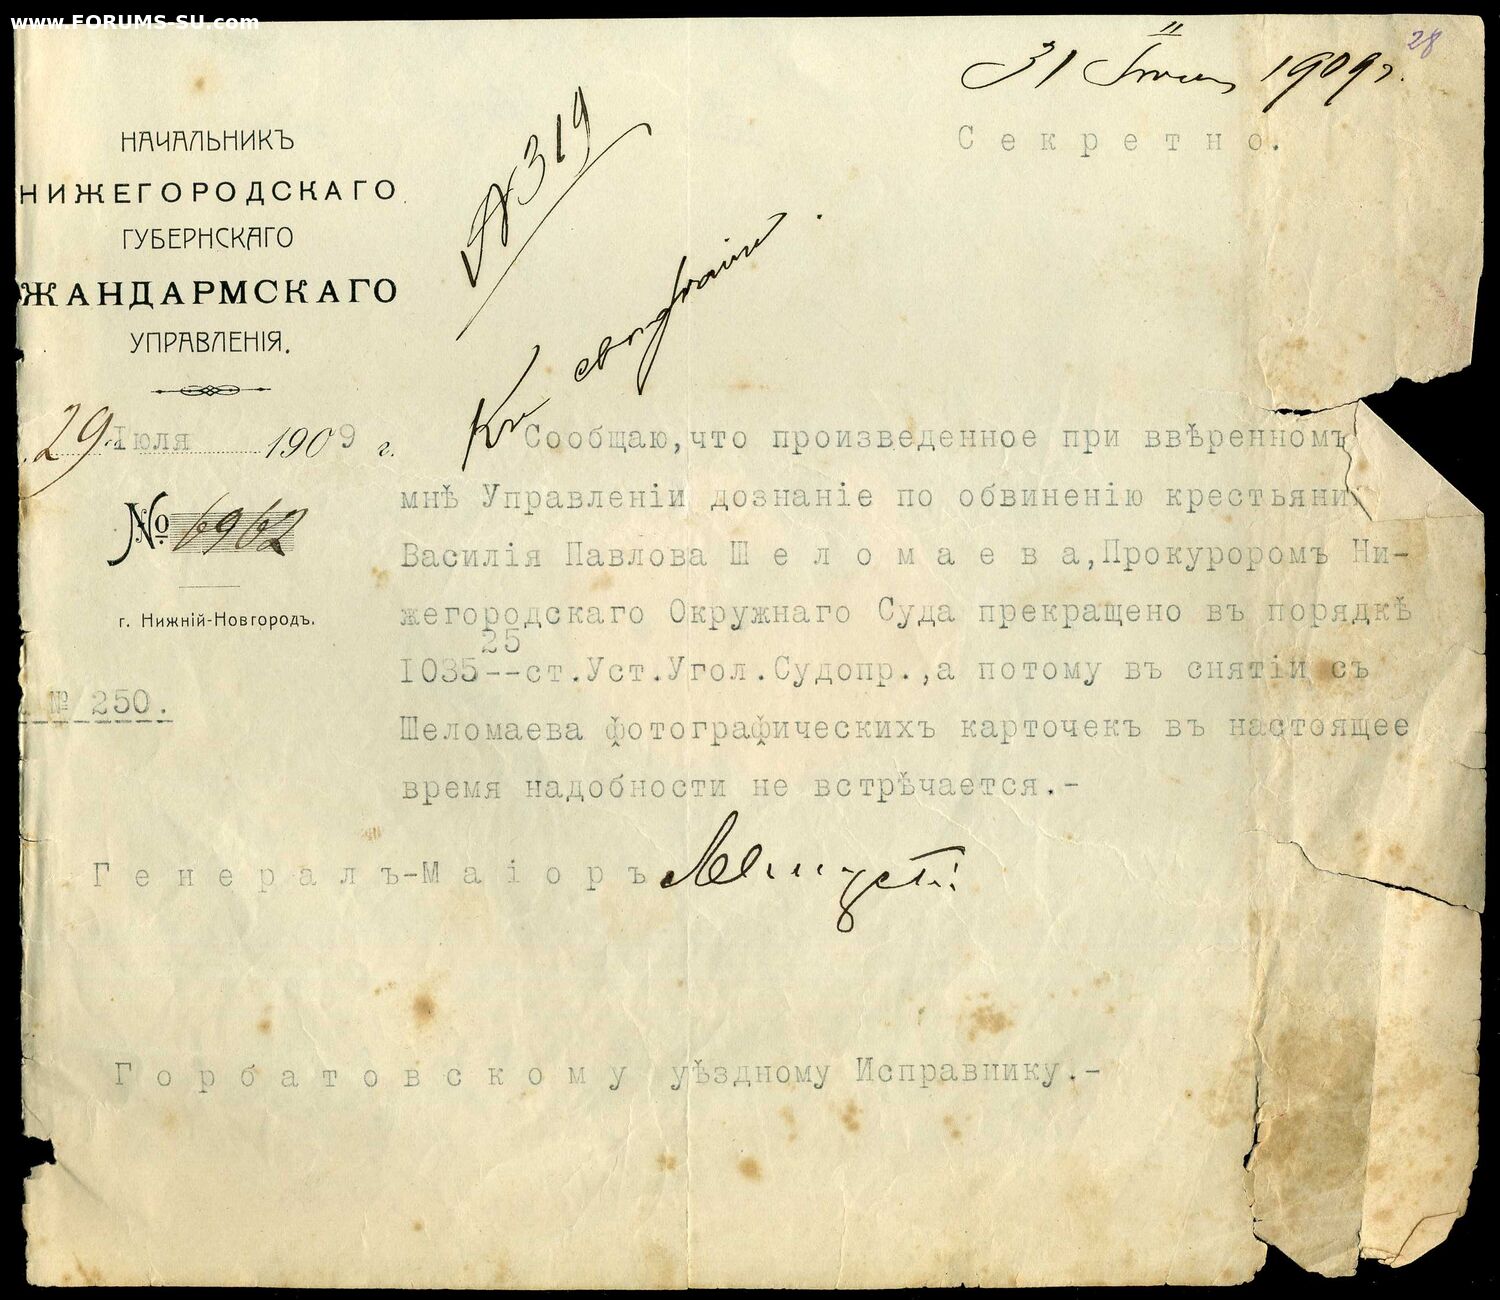 www.FORUMS-SU.com
28
31 Іюля 1909 г.
Секретно.
НАЧАЛЬНИКЪ
НИЖЕГОРОДСКАГО
ГУБЕРНСКАГО
ЖАНДАРМСКАГО
УПРАВЛЕНІЯ.
29 Іюля 1909 г.
№ 6962
г. Нижній-Новгородъ.
№ 250.
№ 319
Къ
Сообщаю,что произведенное при ввѣренномъ
мнѣ Управленіи дознаніе по обвиненію крестьяни
Василія Павлова Шеломаева,Прокуроромъ Ни-
жегородскаго Окружнаго Суда прекращено въ порядкѣ
25
1035--ст.Уст.Угол.Судопр.,а потому въ снятіи съ
Шеломаева фотографическихъ карточекъ въ настоящее
время надобности не встрѣчается.-
Генералъ-Маіоръ
Горбатовскому уѣздному Исправнику.-